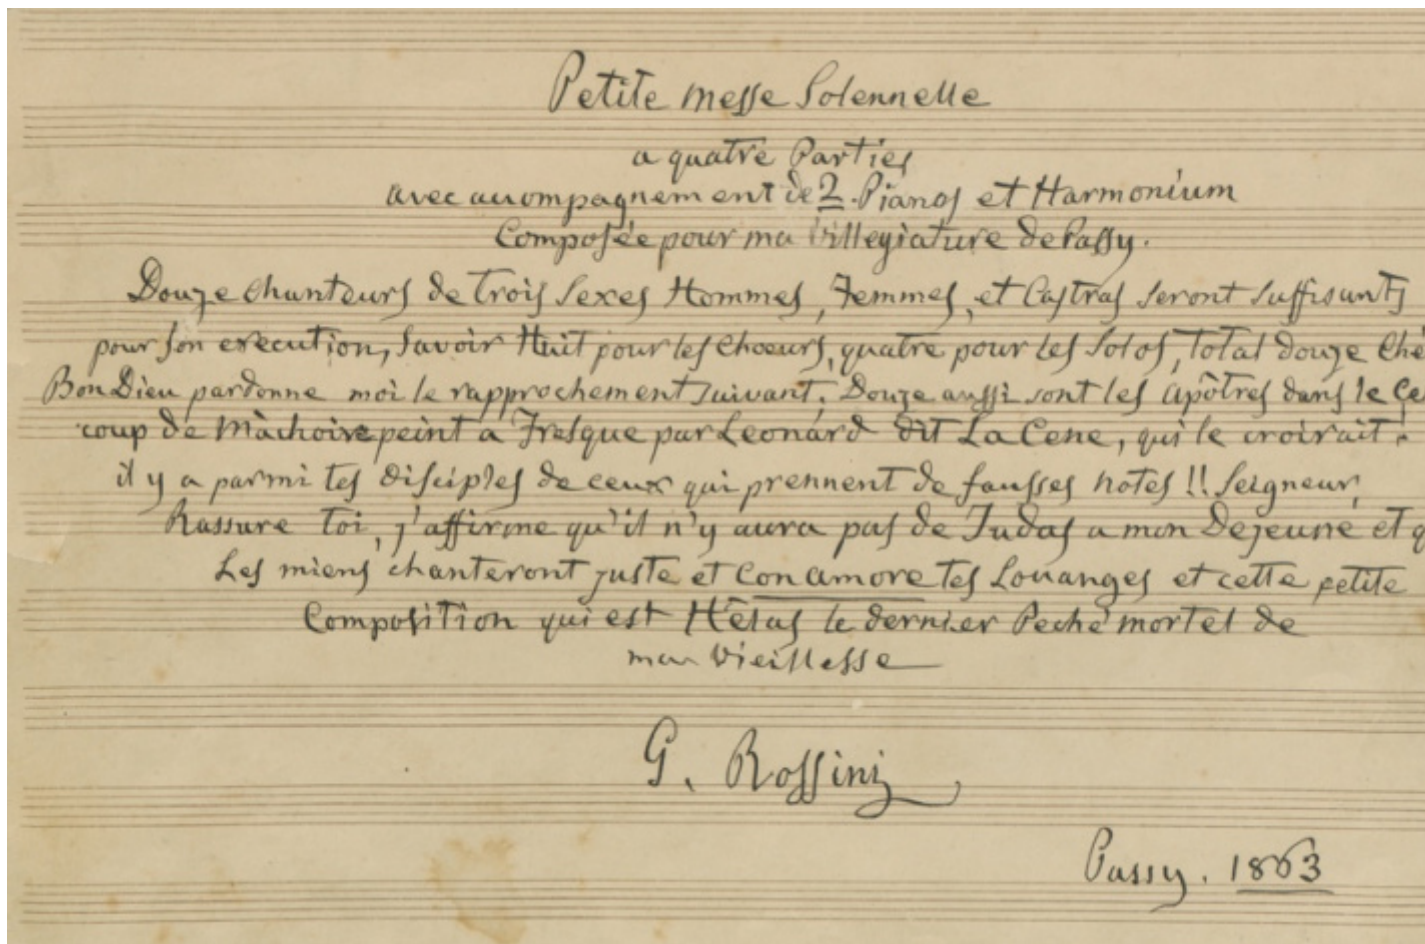 Petite messe Solennelle
a quatre Parties
avec accompagnement de 2 Pianos et Harmonium
Composée pour ma villegiature de Passy.
Douze chanteurs de trois Sexes Hommes, Femmes, et Castras seront suffisants
pour son execution, Savoir Huit pour les Choeurs, quatre pour les Solos, total douze Ché
Bon Dieu pardonne moi le rapprochement suivant, Douze aussi sont les apôtres dans le Ce
coup de Mâchoire peint a Fresque par Leonard dit La Cene, qui le croirait.
il y a parmi tes disciples de ceux qui prennent de fausses notes!! Seigneur,
Rassure toi, j'affirme qu'il n'y aura pas de Judas a mon Dejeuné et q
Les miens chanteront juste et Con amore tes Louanges et cette petite
Composition qui est Hêlas le dernier Peché mortel de
ma vieillesse
G. Rossini
Passy. 1863